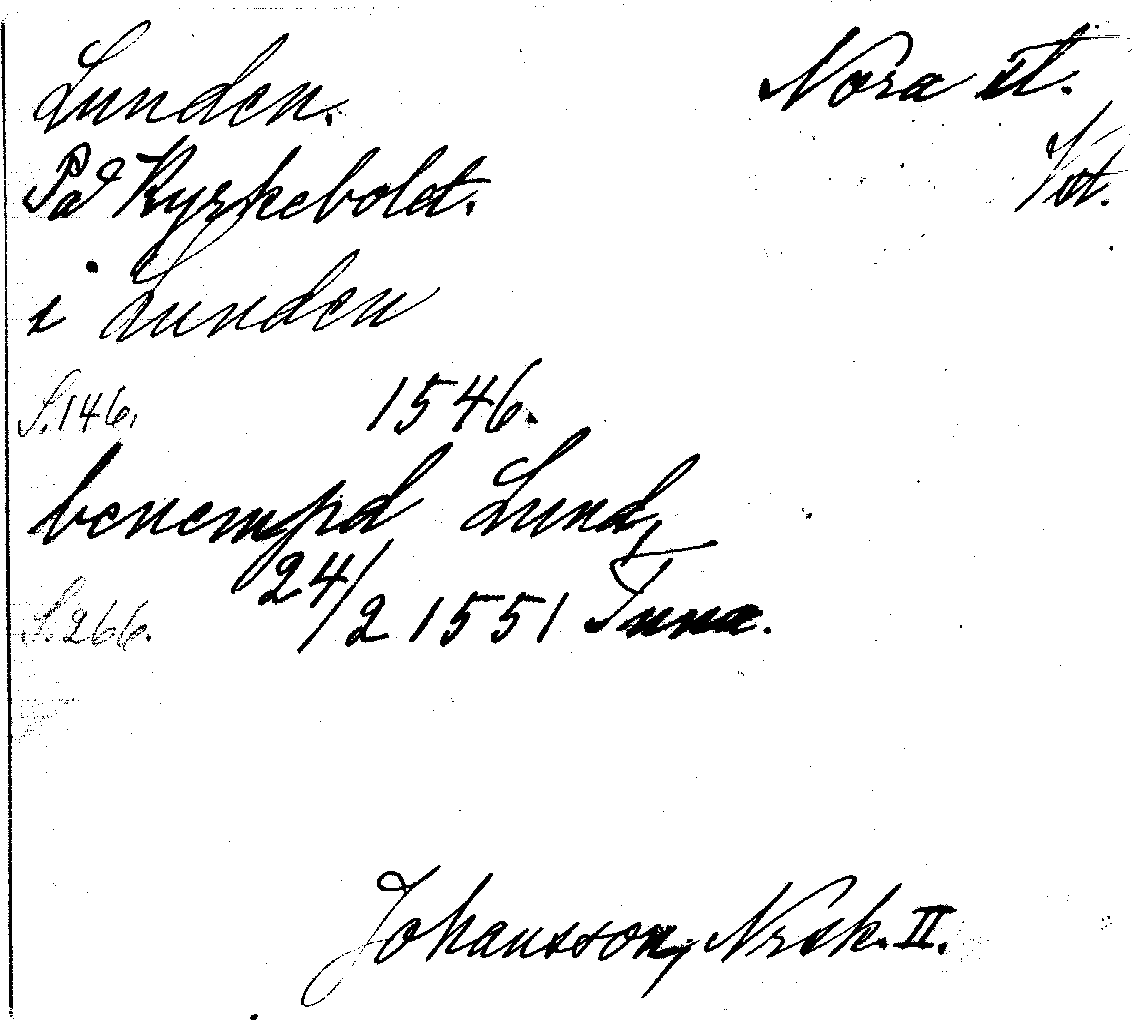 Lunden.
Nora st.
Vst.
På Kyrkebolet.
i Lunden
S. 146.
1546.
benempd Lund,
S. 266.
24/2 1551
Johansson, Nrsk. II.